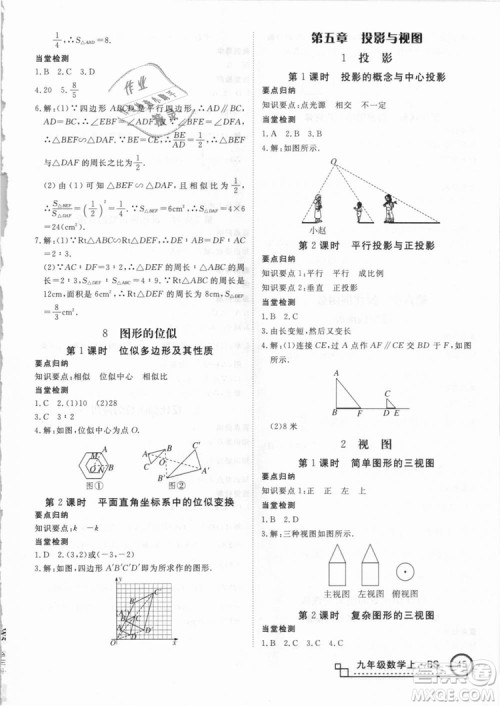 1/4, ∴S△DEF=8/3.
当堂检测
1.B 2.C 3.B
4.20 5.8/5
6.解:(1)∵四边形ABCD是平行四边形,
∴△BEF∽△DAF,
与△DAF的周长之比为1/2.
(2)由(1)可知△BEF∽△DAF,且相似比为
1/2,∴S△BEF/S△DAF=(1/2)²=1/4.∵S△BEF=6cm²,∴S△DAF=4×6
=24(cm²).
7.解:(1)∵Rt△ABC∽Rt△DEF,
(2)∵AC:DF=3:2,Rt△ABC的周长为
12cm,面积为6cm²,∴△DEF的周长为8cm,S△DEF=
8/3(cm²).
8 图形的位似
第1课时 位似多边形及其性质
要点归纳
知识要点:相似 位似中心 位似比
当堂检测
1.D 2.(1)10 (2)28
3.C 4.3:2
5.解:如图,位似中心为点O.
图① 图②
第2课时 平面直角坐标系中的位似变换
要点归纳
知识要点:k -k
当堂检测
1.A 2.D 3.(3,2)或(-3,-2)
4.解:如图,四边形A'B'C'D'即为所求作的图形.
第五章 投影与视图
1 投影
第1课时 投影的概念与中心投影
要点归纳
知识要点:点光源 相交 不一定
当堂检测
1.A 2.C 3.B
4.解:如图所示.
O
小赵
第2课时 平行投影与正投影
要点归纳
知识要点:平行 平行 成比例
知识要点2:垂直 正投影
当堂检测
1.A 2.D
3.由长变短,然后由短变长
4.解:(1)连接CE,过A作AF∥CE交BD于F,如图
所示.
(2)8米
2 视图
第1课时 简单图形的三视图
要点归纳
知识要点:正 正 左 上
当堂检测
1.B 2.D
3.解:三种视图如图所示.
主视图 左视图 俯视图
第2课时 复杂图形的三视图
当堂检测
九年级数学上·BS 45